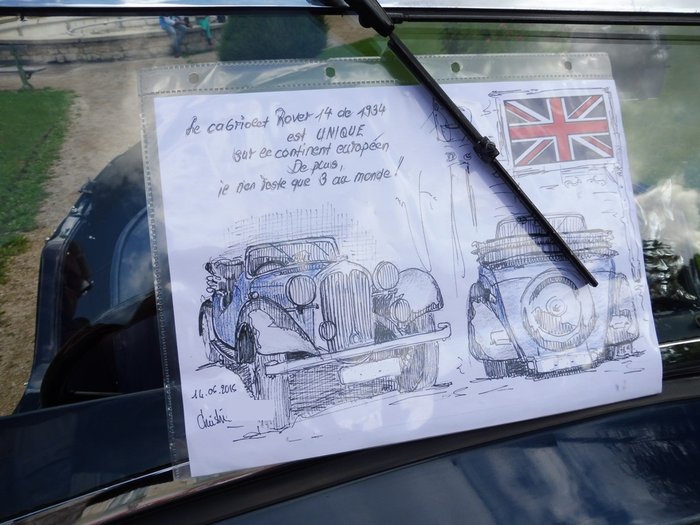 Le cabriolet Rover 14 de 1934
est UNIQUE
sur le continent européen
De plus,
il n'en reste que 3 au monde !
14.05.2016